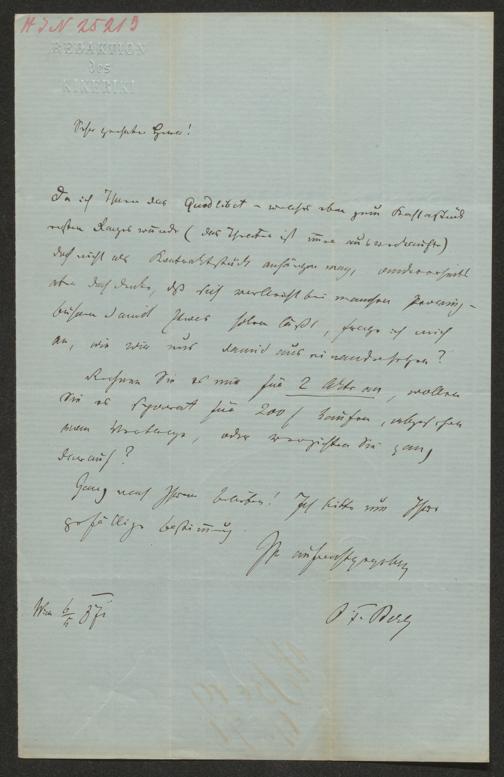 H I N 25219
REDAKTION
des
KIKERIKI
Sehr geehrter Herr!
Da ich Ihnen das Quodlibet – welches eben zum
ersten Ranges wurde (das Theater ist immer ausverkauft)
doch nicht als anhängen mag, andererseits
aber doch denke, daß sich vielleicht bei manchen Provinz-
bühnen damit etwas holen läßt, frage ich mich
an, wie wir uns damit auseinandersetzen?
Rechnen Sie es mir für 2 Akte an, wollen
Sie es separat für 200 f kaufen, abgesehen
vom Vertrage, oder verzichten Sie ganz
darauf?
Ganz nach Ihrem Belieben! Ich bitte um Ihre
gefällige Bestimmung
Ihr
Wien 6/
O. F. Berg